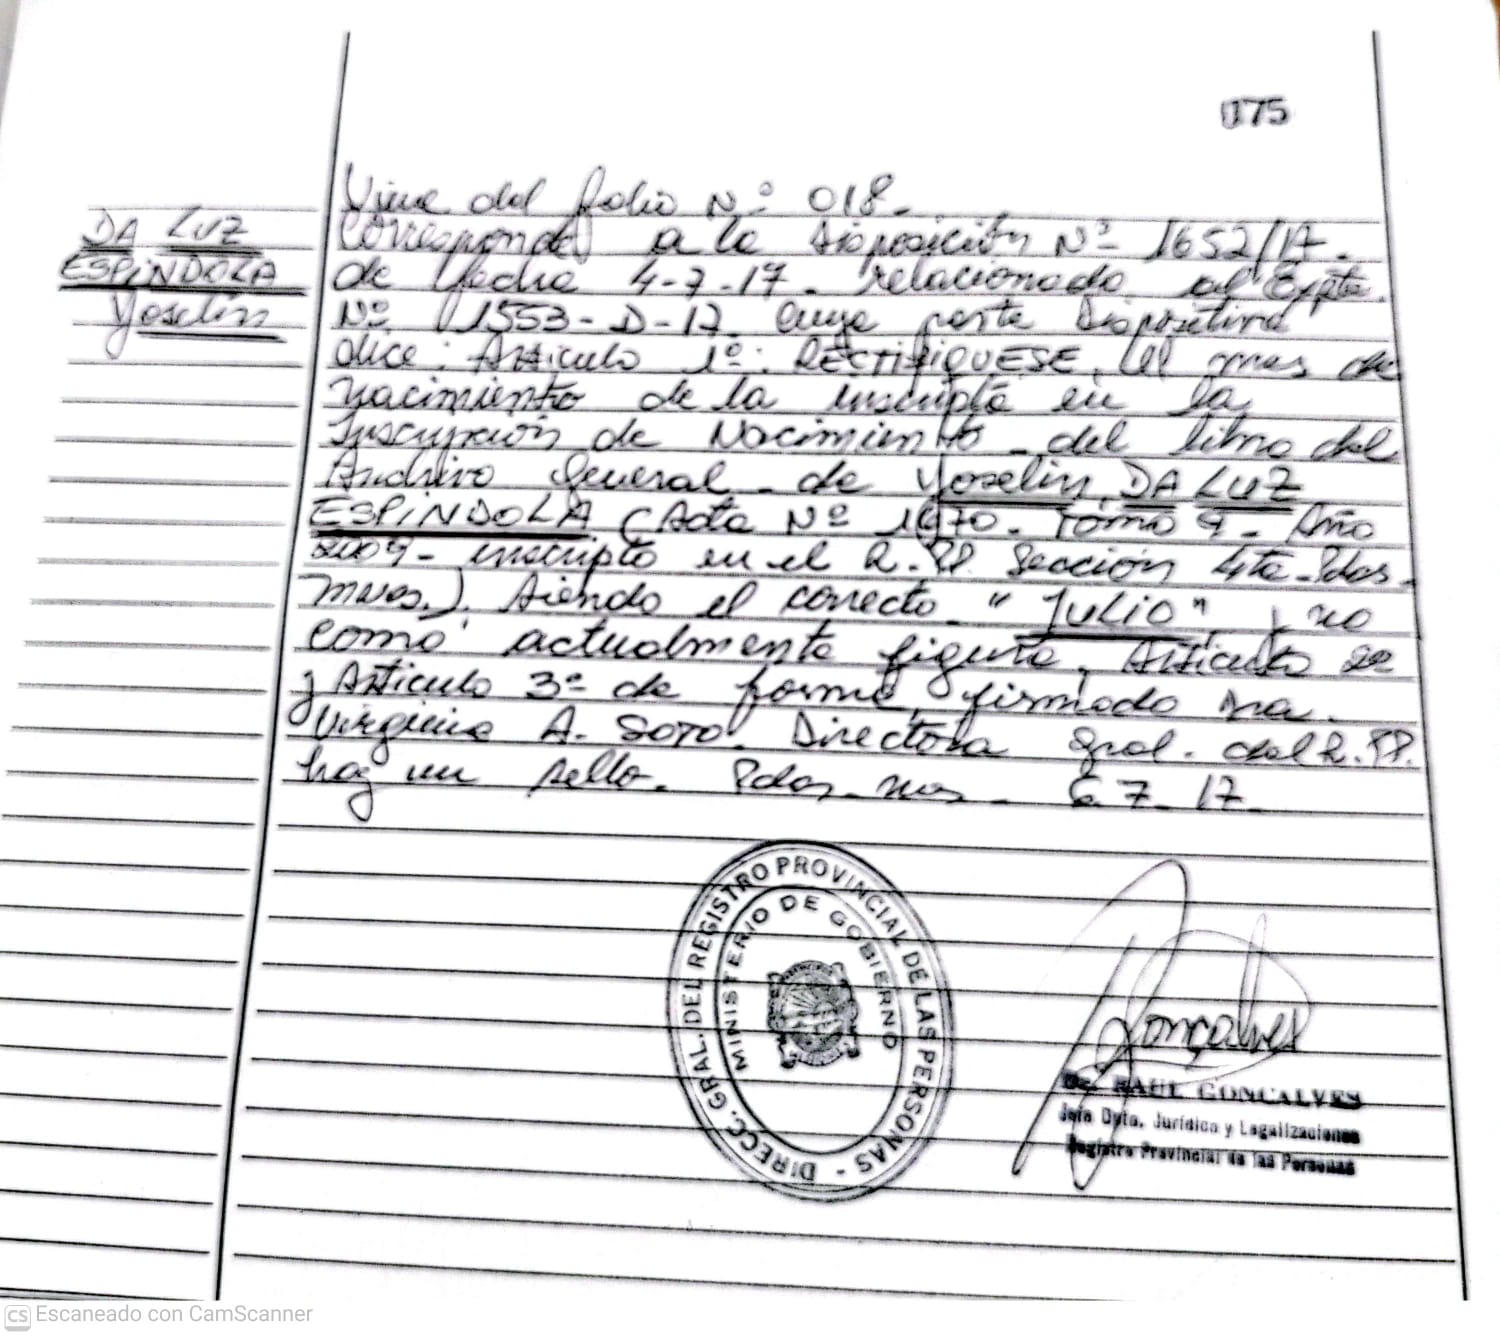 175
Viene del folio Nº 018.
DA LUZ
ESPÍNDOLA
Yoselin
Corresponde a la Disposición Nº 1652/17.
de fecha 4-7-17. relacionado al Expte.
Nº 1553-D-17 cuya parte Dispositiva
dice: Artículo 1º: RECTIFIQUESE, el mes de
nacimiento de la inscripta en la
Inscripción de Nacimiento del libro del
Archivo General de Yoselin DA LUZ
ESPÍNDOLA (Acta Nº 1670. Tomo 9. Año
2009- inscripto en el R.PP. Sección 4ta-Pdas.
Mnes.). Siendo el correcto "JULIO" y no
como actualmente figura. Artículo 2º
y Artículo 3º de forma, firmado Dra.
Virginia A. SOTO. Directora Gral. del R.PP.
hay un sello. Pdas. Mnes. 6.7.17.
DIRECC. GRAL. DEL REGISTRO PROVINCIAL DE LAS PERSONAS -
MINISTERIO DE GOBIERNO
Gonçalves
Dr. RAUL GONCALVES
Jefe Dpto. Jurídico y Legalizaciones
Registro Provincial de las Personas
CS Escaneado con CamScanner